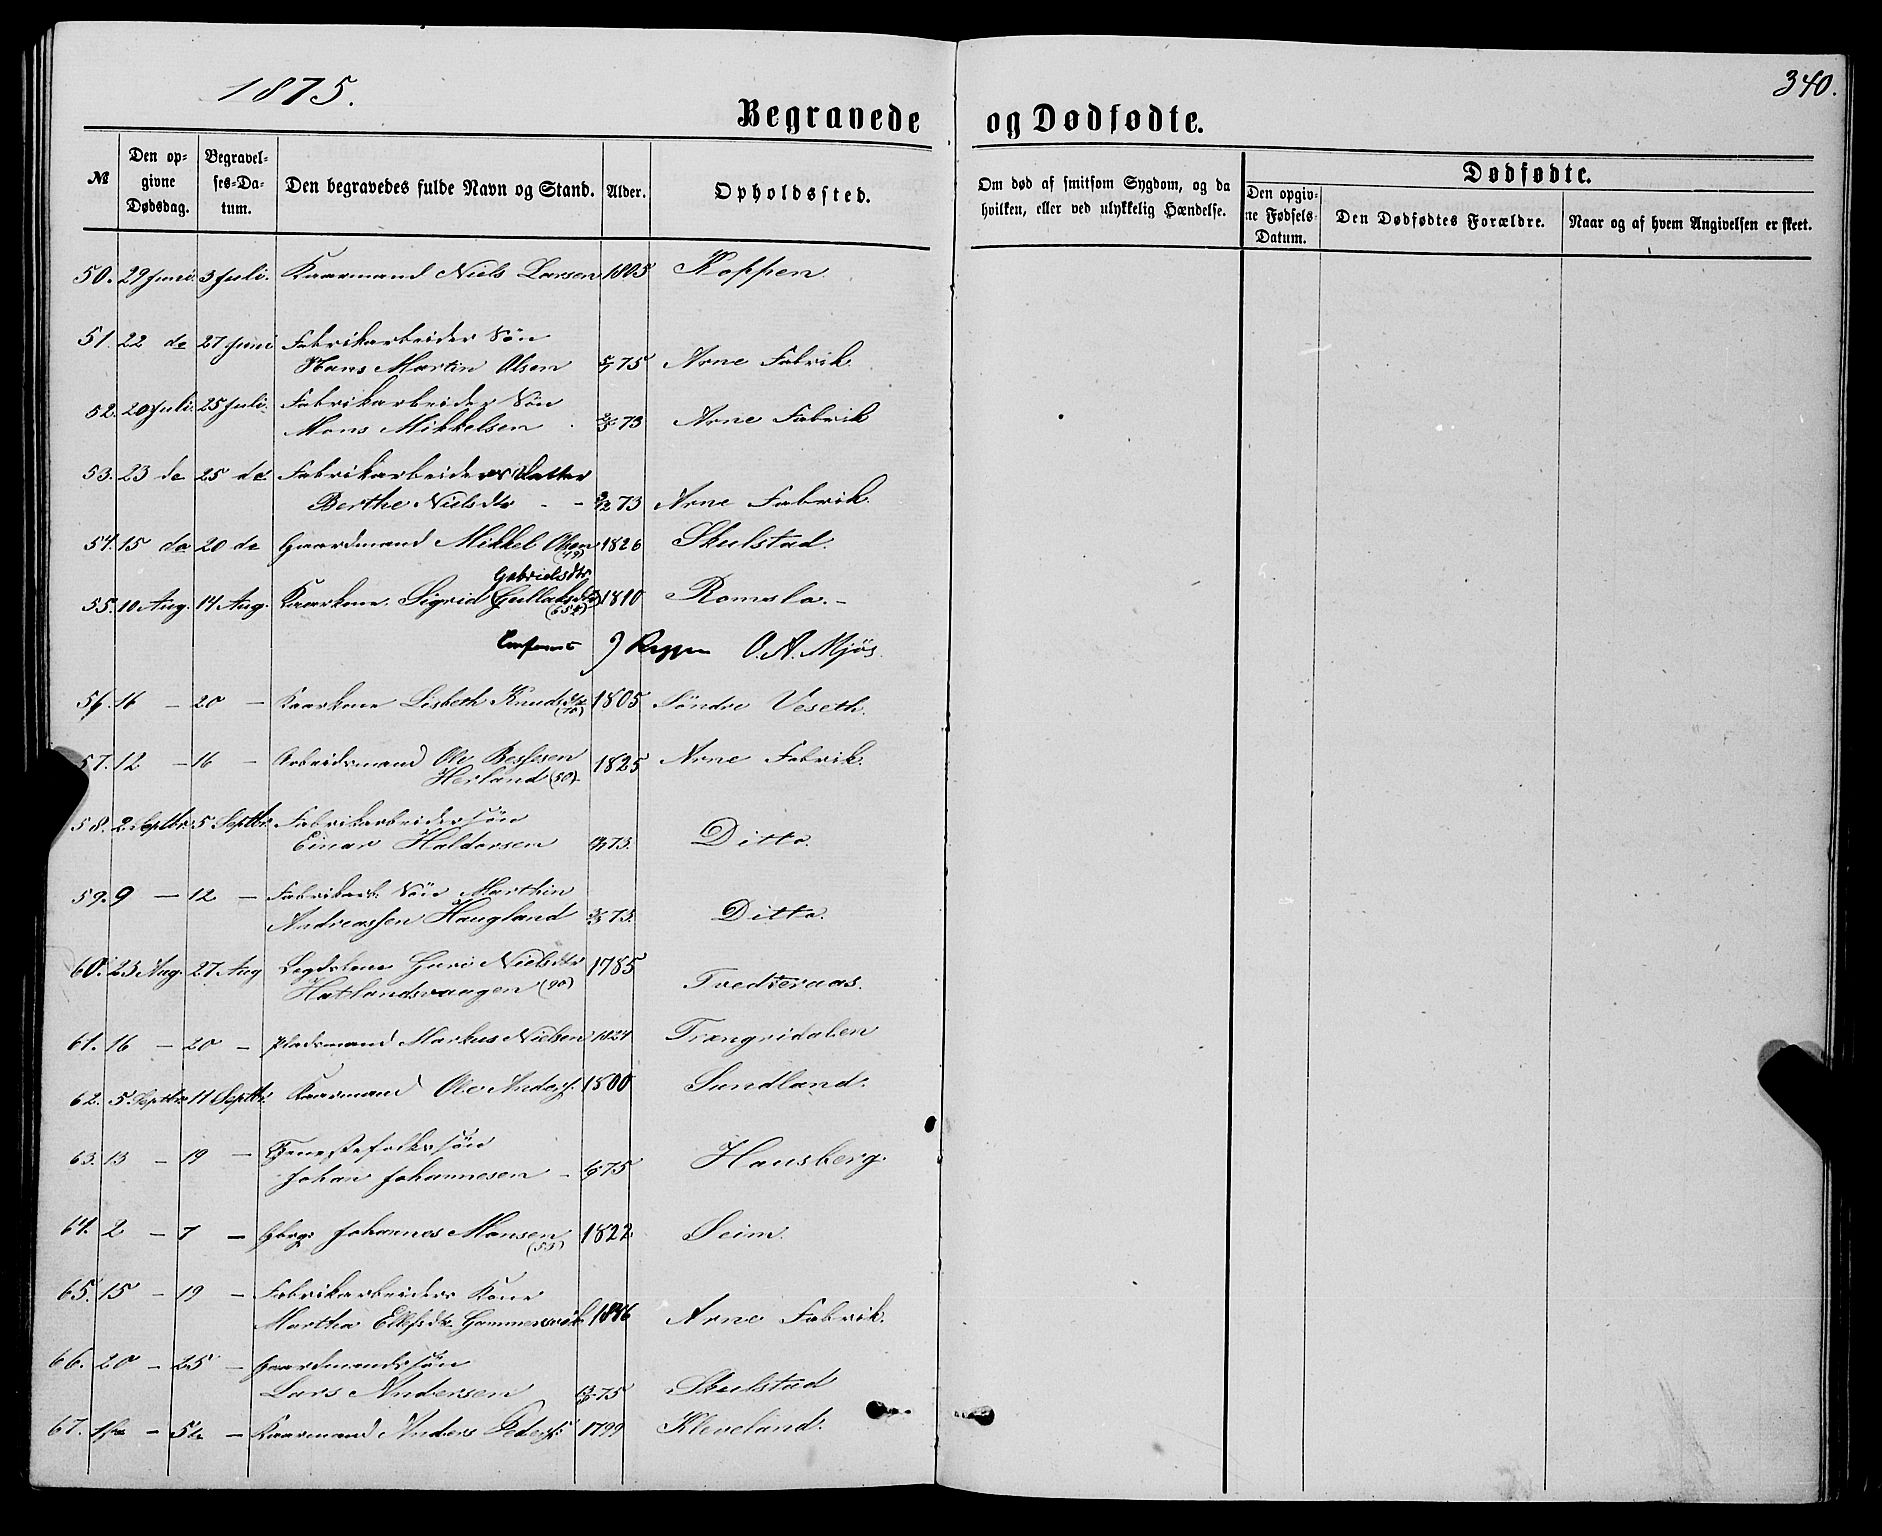 1875.
340.
Begravede og Dødfødte.
№
Den opgivne Dødsdag.
Begravelses-Datum.
Den begravedes fulde Navn og Stand.
Alder.
Opholdssted.
Om død af smitsom Sygdom, og da hvilken, eller ved ulykkelig Hændelse.
Dødfødte.
Den opgivne Fødsels-Datum.
Den Dødfødtes Forældre.
Naar og af hvem Angivelsen er skeet.
50. 29 Juni. 3 Juli. Kaarmand Niels Larsen 1805 Koppen.
51. 22 do 27 Juni Fabrikarbeider Søn
Hans Martin Olsen 75 Arne Fabrik.
52. 20 Juli. 25 Juli. Fabrikarbeider Søn
Mons Mikkelsen 73 Arne Fabrik
53. 23 do 25 do Fabrikarbeiders Datter
Berthe Nielsdtr - - 73 Arne Fabrik.
54. 15 do 20 do Gaardmand Mikkel Olsen 1826 Skulstad.
(49)
Gabrielsdtr
55. 10 Aug. 14 Aug. Kaarkone Sigrid (Gullaksdtr) 1810 Romslo. -
O. A. Mjøs.
56. 16 - 20 - Kaarkone Lisbeth Knudsdtr 1805 Søndre Veseth.
(70)
57. 12 - 16 - Arbeidsmand Ole Bessesen
Herland (50). 1825 Arne Fabrik.
58. 2 Septbr. 5 Septbr. Fabrikarbeidersøn
Einar Haldorsen 73. Ditto.
59. 9 - 12 - Fabrikarb. Søn Marthin
Andreassen Haugland 73. Ditto.
60. 23 Aug. 27 Aug Guri Nielsdtr 1785
Hatlandsvaagen (90) Tvedteraas.
61. 16 - 20 - Pladsmand Markus Nielsen 1824 Trængridalen
62. 5 Septbr. 11 Septbr. Kaarmand Ole Anders. 1800 Sundland.
63. 13 - 19 - Tjenestefolksøn
Johan Johannesen - 75 Hausberg.
64. 2 - 7 - Gbrgr Johannes Monsen 1822 Seim.
(53)
65. 15 - 19 - Fabrikarbeiders Kone
Martha Ellefsdtr Gammersvik 1846 Arne Fabrik.
66. 20 - 25 - Gaardmandssøn
Lars Andersen 75 Skulstad
67. - - Kaarmand Anders Peders. 1799 Kleveland.